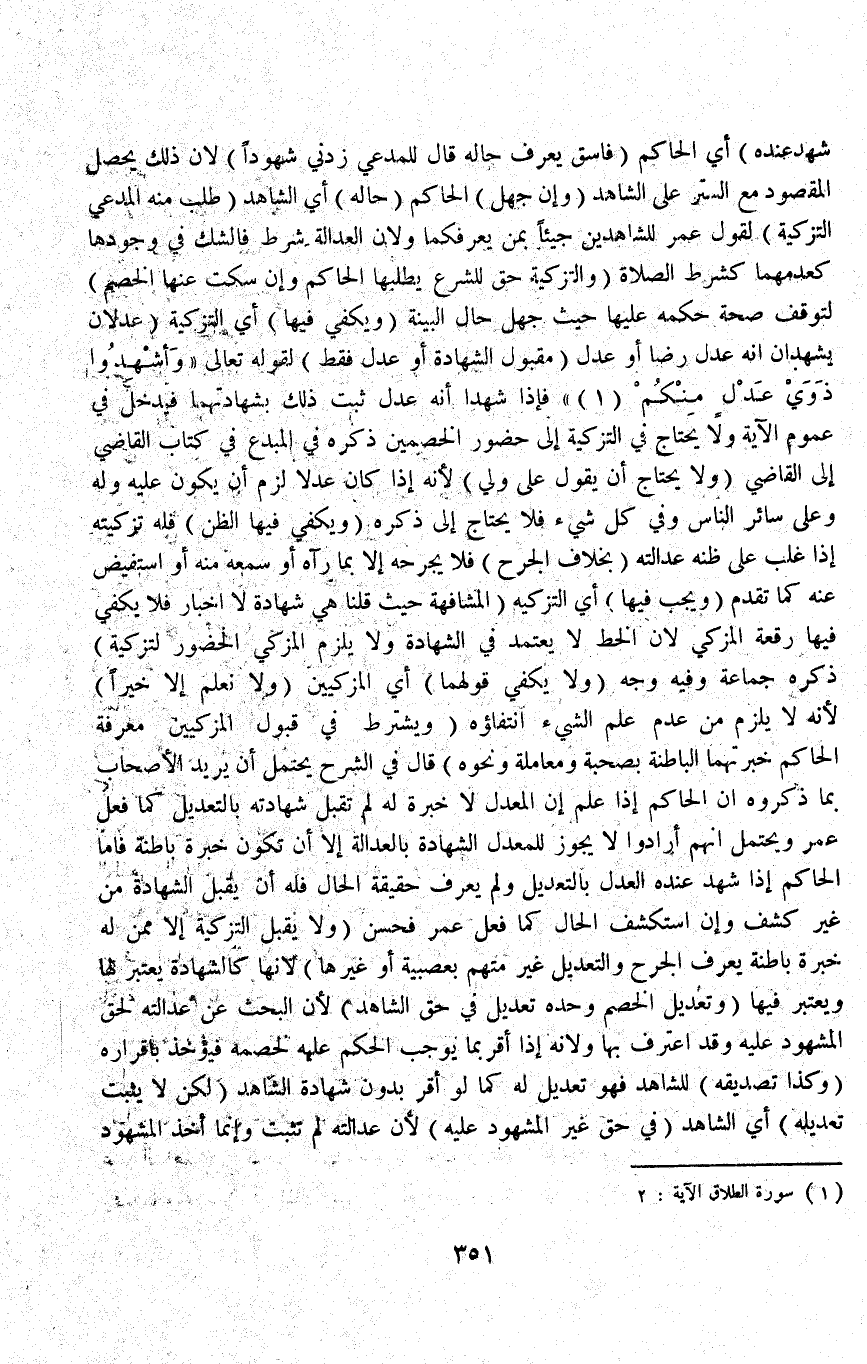 شهد عنده ) أي الحاكم ( فاسق يعرف حاله قال للمدعي زدني شهوداً ) لان ذلك يحصل
المقصود مع الستر على الشاهد ( وإن جهل ) الحاكم ( حاله ) أي الشاهد ( طلب منه المدعي
التزكية ) لقول عمر للشاهدين جيئاً بمن يعرفكما ولان العدالة شرط فالشك في وجودها
كعدمهما كشرط الصلاة ( والتزكية حق للشرع يطلبها الحاكم وإن سكت عنها الخصم )
لتوقف صحة حكمه عليها حيث جهل حال البينة ( ويكفي فيها ) أي التزكية ( عدلان
يشهدان انه عدل رضا أو عدل ( مقبول الشهادة أو عدل فقط ) لقوله تعالى « وَأَشْهِدُوا
ذَوَيْ عَدْلٍ مِنْكُمْ ( ١ ) » فإذا شهدا أنه عدل ثبت ذلك بشهادتهما فيدخل في
عموم الآية ولا يحتاج في التزكية إلى حضور الخصمين ذكره في المبدع في كتاب القاضي
إلى القاضي ( ولا يحتاج أن يقول على ولي ) لأنه إذا كان عدلا لزم أن يكون عليه وله
وعلى سائر الناس وفي كل شيء فلا يحتاج إلى ذكره ( ويكفي فيها الظن ) فله تزكيته
إذا غلب على ظنه عدالته ( بخلاف الجرح ) فلا يجرحه إلا بما رآه أو سمعه منه أو استفيض
عنه كما تقدم ( ويجب فيها ) أي التزكيه ( المشافهة حيث قلنا هي شهادة لا اخبار فلا يكفي
فيها رقعة المزكي لان الخط لا يعتمد في الشهادة ولا يلزم المزكي الحضور لتزكية )
ذكره جماعة وفيه وجه ( ولا يكفي قولهما ) أي المزكيين ( ولا نعلم إلا خيراً )
لأنه لا يلزم من عدم علم الشيء انتفاؤه ( ويشترط في قبول المزكيين معرفة
الحاكم خبرتهما الباطنة بصحبة ومعاملة ونحوه ) قال في الشرح يحتمل أن يريد الأصحاب
بما ذكروه ان الحاكم إذا علم إن المعدل لا خبرة له لم تقبل شهادته بالتعديل كما فعل
عمر ويحتمل انهم أرادوا لا يجوز للمعدل الشهادة بالعدالة إلا أن تكون خبرة باطنة فاما
الحاكم إذا شهد عنده العدل بالتعديل ولم يعرف حقيقة الحال فله أن يقبل الشهادة من
غير كشف وإن استكشف الحال كما فعل عمر فحسن ( ولا يقبل التزكية إلا ممن له
خبرة باطنة يعرف الجرح والتعديل غير متهم بعصبية أو غيرها ) لانها كالشهادة يعتبر لها
ويعتبر فيها ( وتعديل الخصم وحده تعديل في حق الشاهد ) لأن البحث عن عدالته لحق
المشهود عليه وقد اعترف بها ولانه إذا أقر بما يوجب الحكم عليه لخصمه فيؤخذ باقراره
( وكذا تصديقه ) للشاهد فهو تعديل له كما لو أقر بدون شهادة الشاهد ( لكن لا يثبت
تعديله ) أي الشاهد ( في حق غير المشهود عليه ) لأن عدالته لم تثبت وإنما أخذ المشهود
( ١ ) سورة الطلاق الآية : ٢
٣٥١